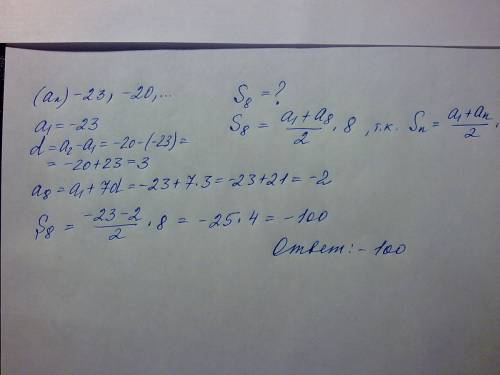 (aₙ) -23, -20,... S₈ = ?
a₁ = -23
S₈ = (a₁ + a₈)/2 · 8, т.к. Sₙ = (a₁ + aₙ)/2 ·
d = a₂ - a₁ = -20 - (-23) =
= -20 + 23 = 3
a₈ = a₁ + 7d = -23 + 7·3 = -23 + 21 = -2
S₈ = (-23 - 2)/2 · 8 = -25 · 4 = -100
Ответ: -100